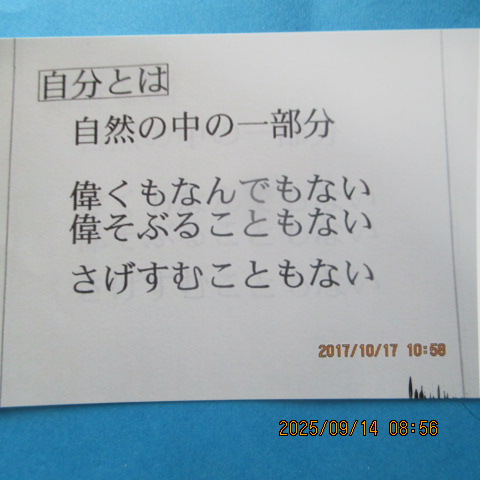 自分とは
自然の中の一部分
偉くもなんでもない
偉そぶることもない
さげすむこともない
2017/10/17 10:58
2025/09/14 08:56